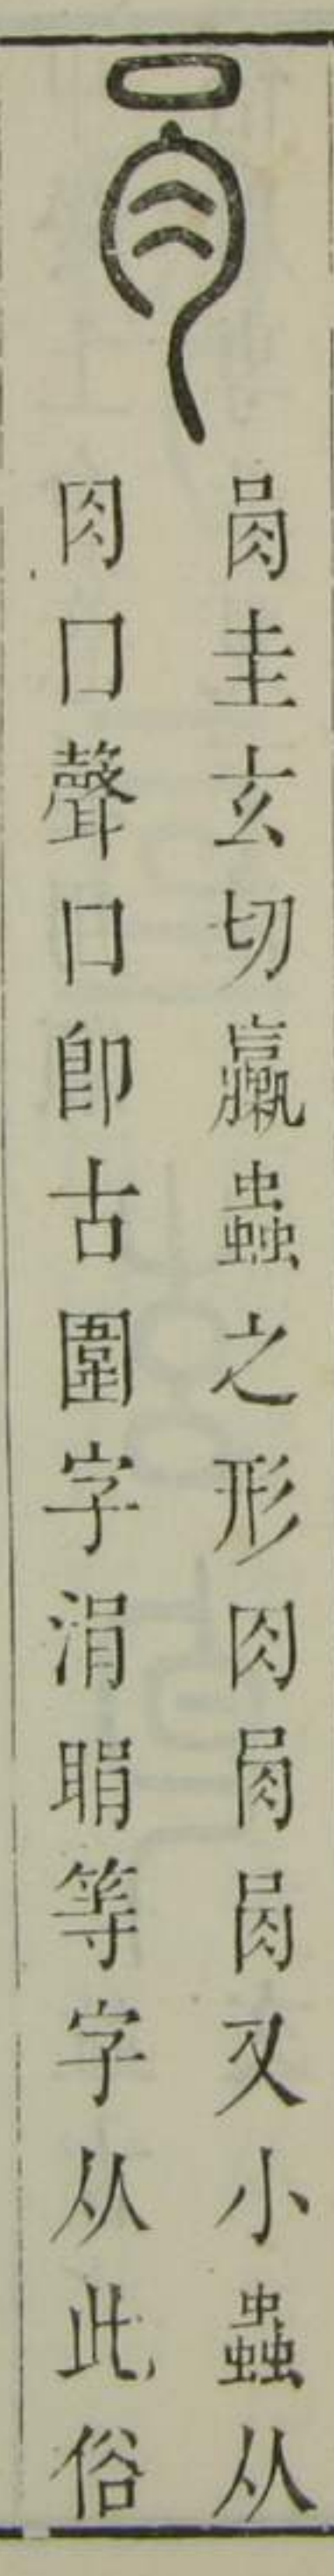 肙圭玄切蠃蟲之形肉肙肙又小蟲从
肉囗聲囗卽古圍字涓睊等字从此俗